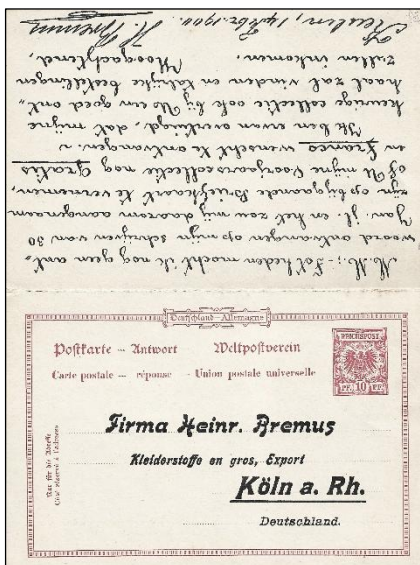 M. M.; - Tot heden mocht ik nog geen ant-
woord ontvangen op mijn schrijven van 30
Jan. jl. en het zou mij daarom aangenaam
zijn op bijgaande Briefkaart te vernemen,
of U mijne Voorjaarscollectie nog gratis
en franco wenscht te ontvangen.
Ik ben ervan overtuigd, dat mijne
keurige collectie ook bij U een goed ont-
haal zal vinden en talrijke bestellingen
zullen inkomen. Hoogachtend,
Keulen, 14 Febr. 1900. H. Bremus
Deutschland – Allemagne
Postkarte – Antwort Weltpostverein
Carte postale – réponse – Union postale universelle
REICHSPOST
PF. 10 PF.
Nur für die Adresse
Côté réservé à l'adresse
Firma Heinr. Bremus
Kleiderstoffe en gros, Export
Köln a. Rh.
Deutschland.